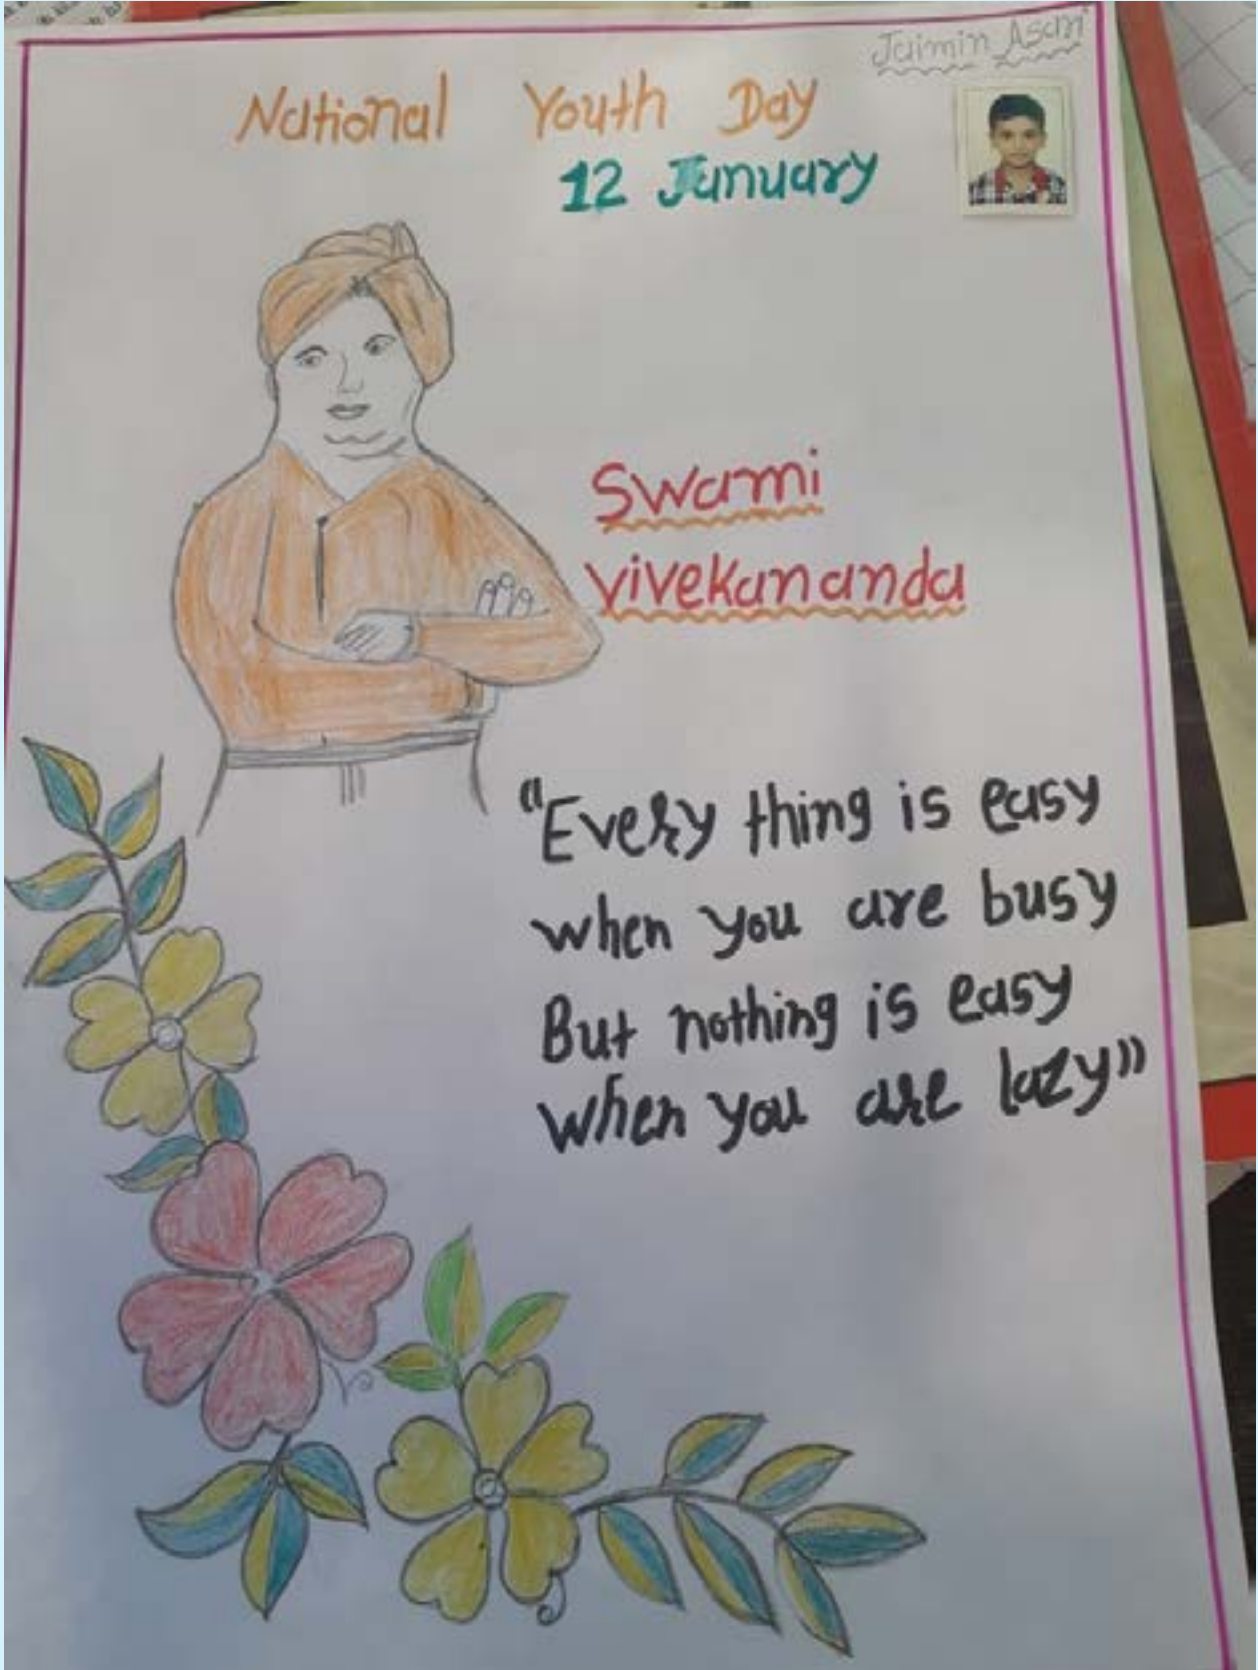 Jaimin Asari
National Youth Day
12 January
Swami
Vivekananda
"Every thing is easy
when you are busy
But nothing is easy
when you are lazy"